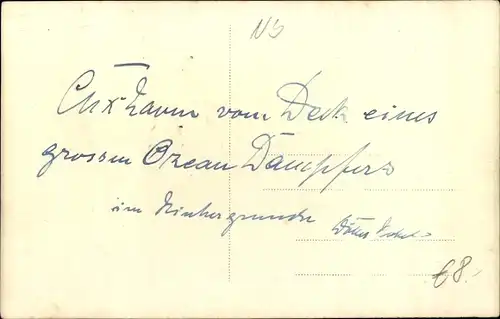 NS
Cuxhaven vom Deck eines
grossen Ozean Dampfers
im Hintergrunde
€8.-